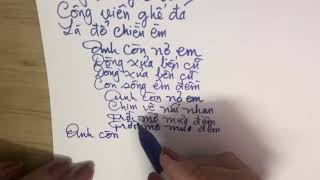 Công viên ghế đá
Lá đổ chiều êm
Anh còn nợ em
Dòng xưa bến cũ
Dòng xưa bến cũ
Con sông êm đềm
Anh còn nợ em
Chim về núi nhạn
Trời mờ mưa đêm
Trời mờ mưa đêm
Anh còn